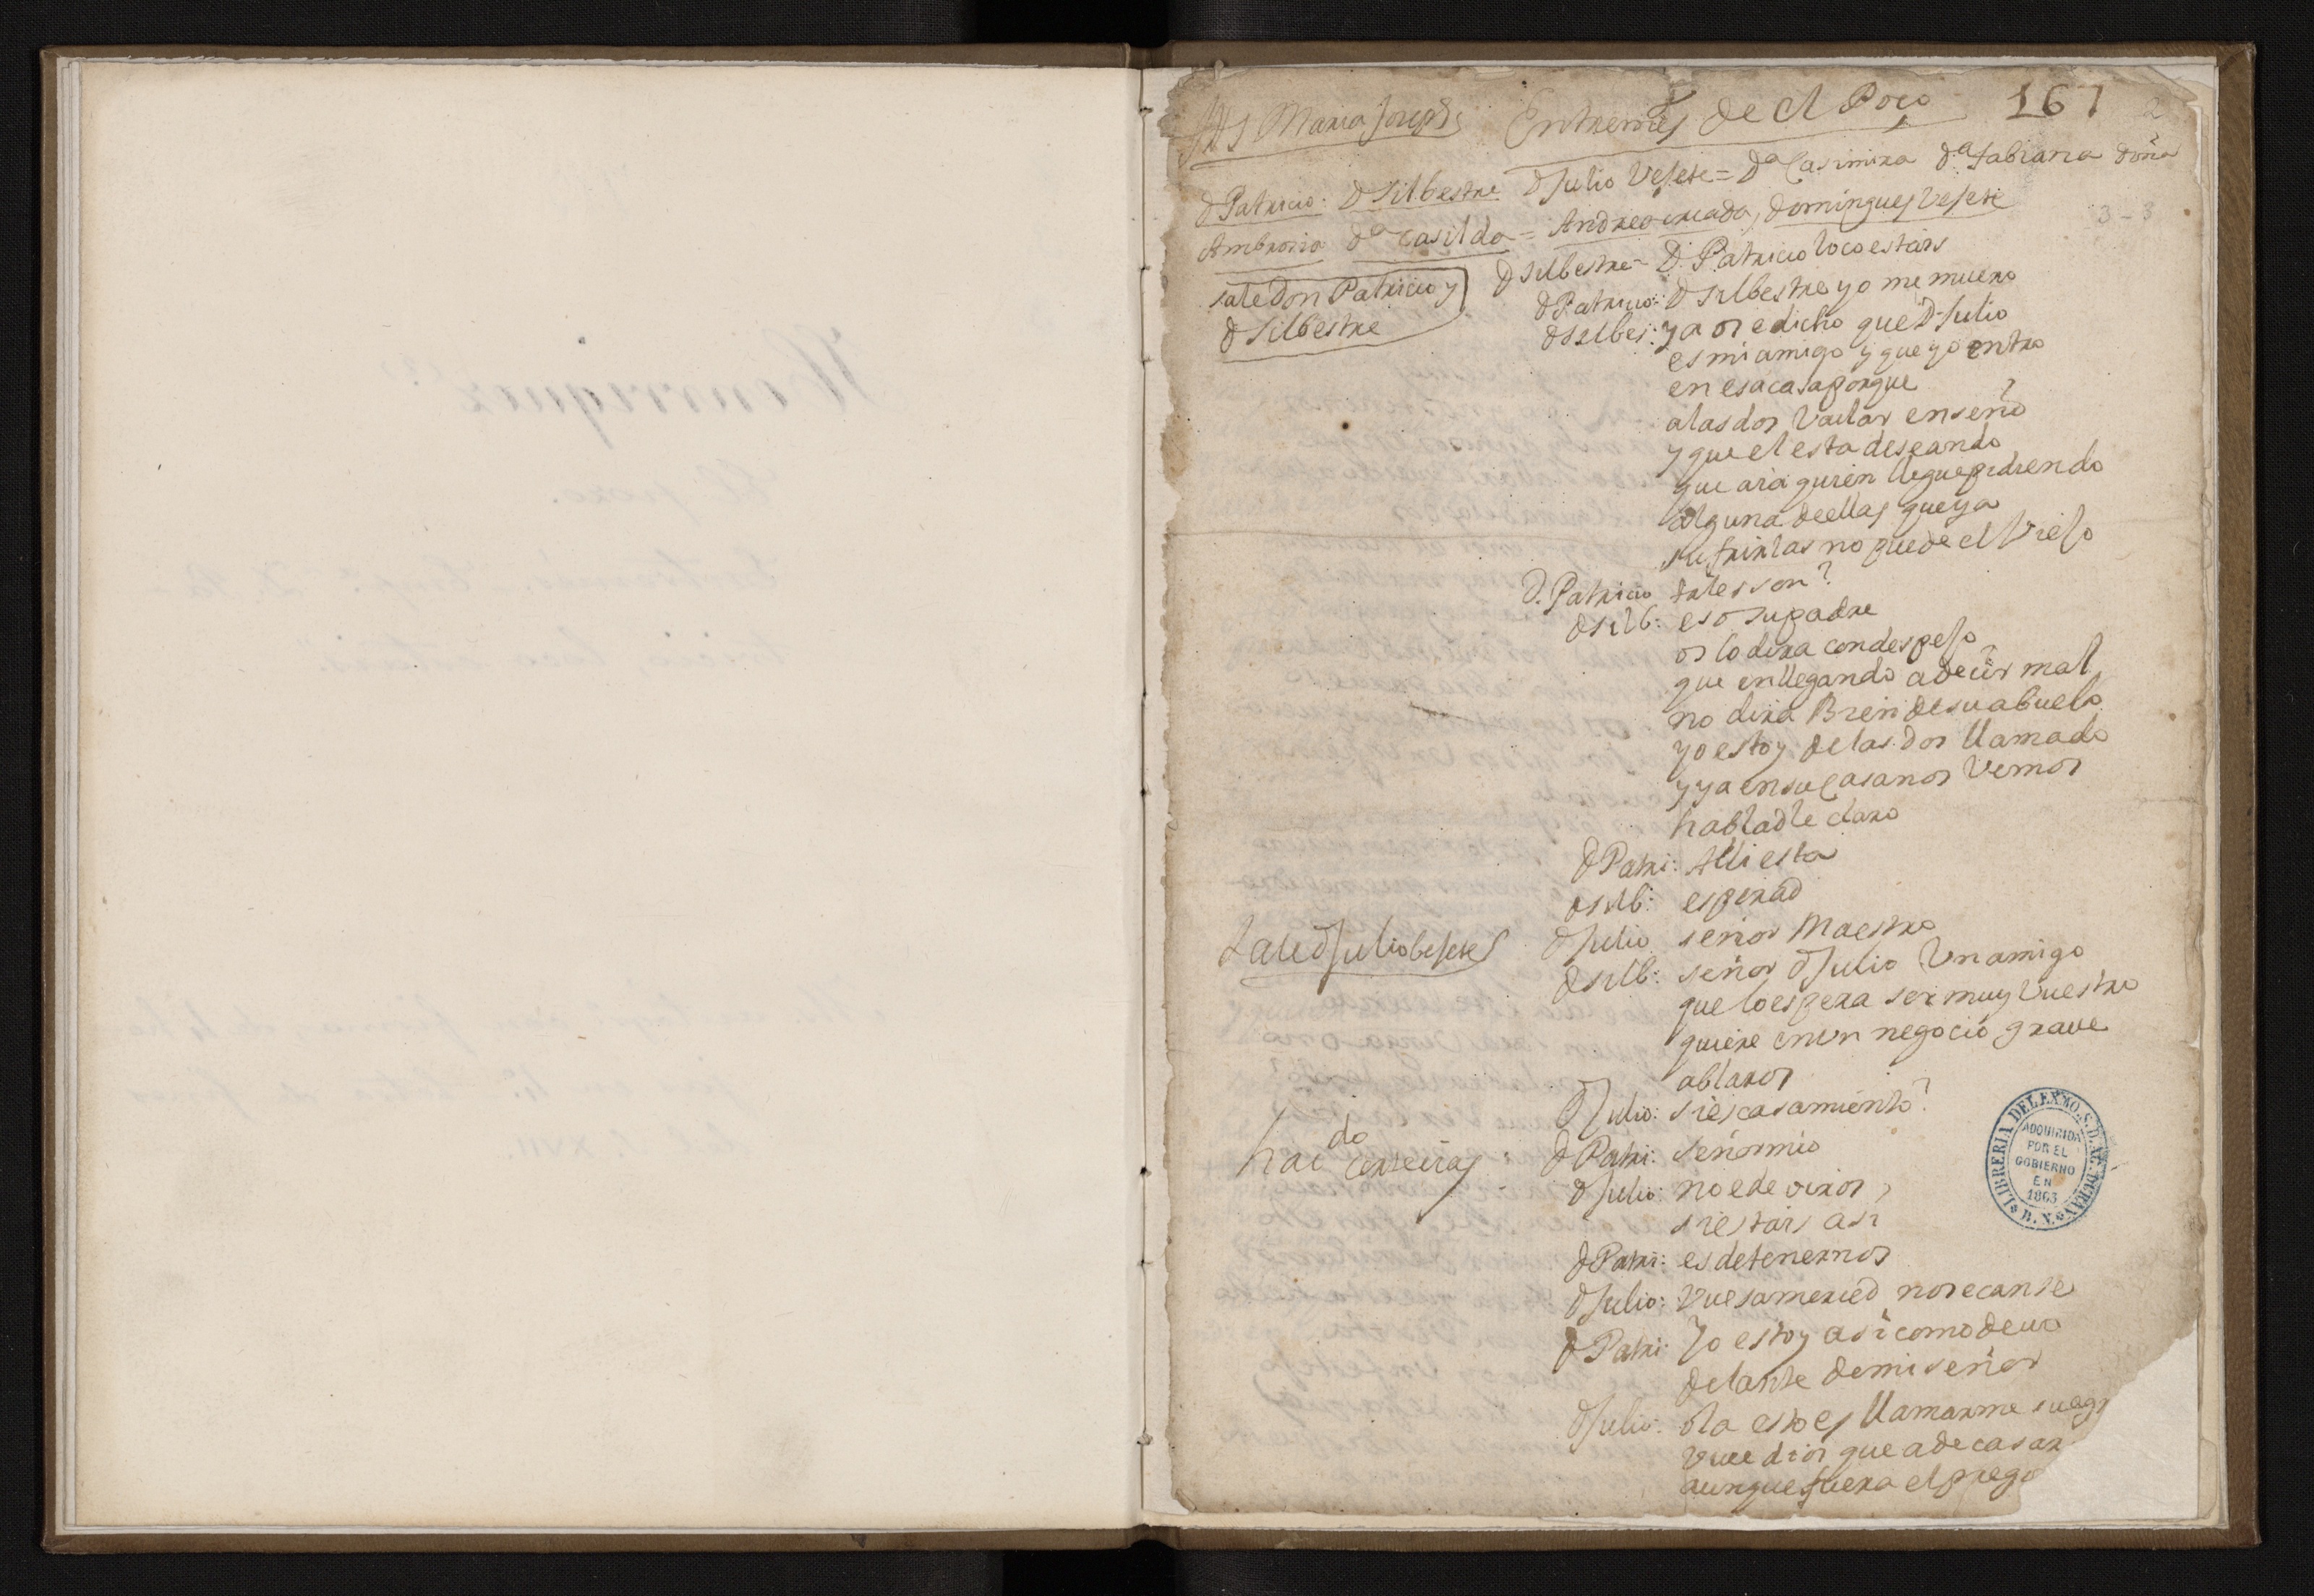 JHS Maria Joseph Entremes de el Poço 167 2
D Patricio: D Silbestre D Julio Vejete = Dª Casimira Dª fabiana doña
Ambrosia Dª casilda = Andrea criada, domingues Vejete
3-3
sale Don Patricio y
D Silbestre
D silbestre- D. Patricio loco estais
D Patricio: D silbestre yo me muero
D silbes: ya os e dicho que D Julio
es mi amigo y que yo entro
en esa casa porque
a las dos Vailar enseño
y que el esta deseando
que aia quien llegue pidiendo
alguna de ellas que ya
sufrirlas no puede el Viejo
D. Patricio tales son?
D silb: eso su padre
os lo dira con despejo
que en llegando a decir mal
no dira Bien de su abuelo
yo estoy de las dos llamado
y ya en su casa nos Vemos
habladle claro
D Patri: Alli esta
D silb: esperad
Sale D Julio bejete
D Julio señor Maestro
D silb: señor D Julio Vn amigo
que lo espera ser muy Vuestro
quiere en vn negocio graue
ablaros
D Julio: si es casamiento?
haido cortesias
D Patri: señor mio
D Julio: no e de oiros
si estais asi
D Patri: es detenernos
D Julio: Vuesamerced no se canse
D Patri: Yo estoy asi como deuo
delante de mi señor
D Julio: ola esto es llamarme suegr
Viue dios que a de casar
aunque fuera el prego
LIBRERIA DEL EXMO. S. D. AG. DURAN
B. N.
ADQUIRIDA
POR EL
GOBIERNO
EN
1863